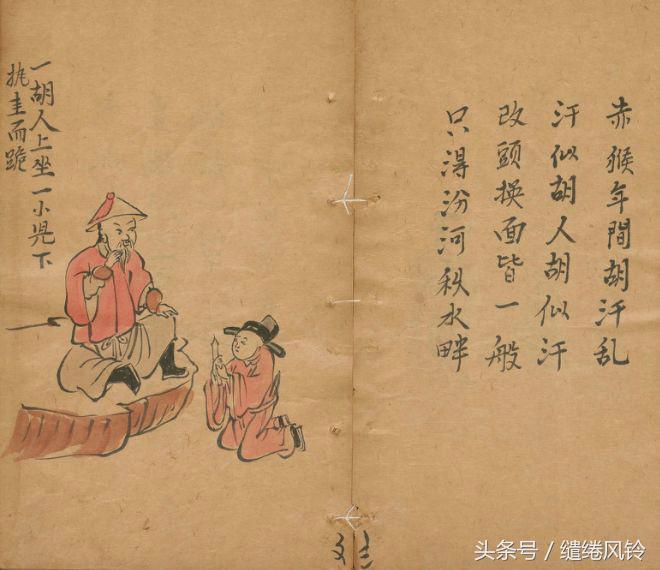 赤猴年間胡汗乱
汗似胡人胡似汗
改頭換面皆一般
只淂汾河秋水畔
一胡人上坐一小児下
执圭而跪
头条号 / 缱绻风铃